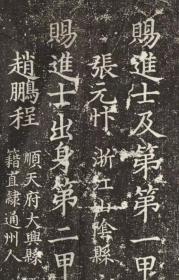 賜進士及第第一甲
張元忭 浙江山陰縣
賜進士出身第二甲
趙鵬程 順天府大興縣
籍直隸通州人